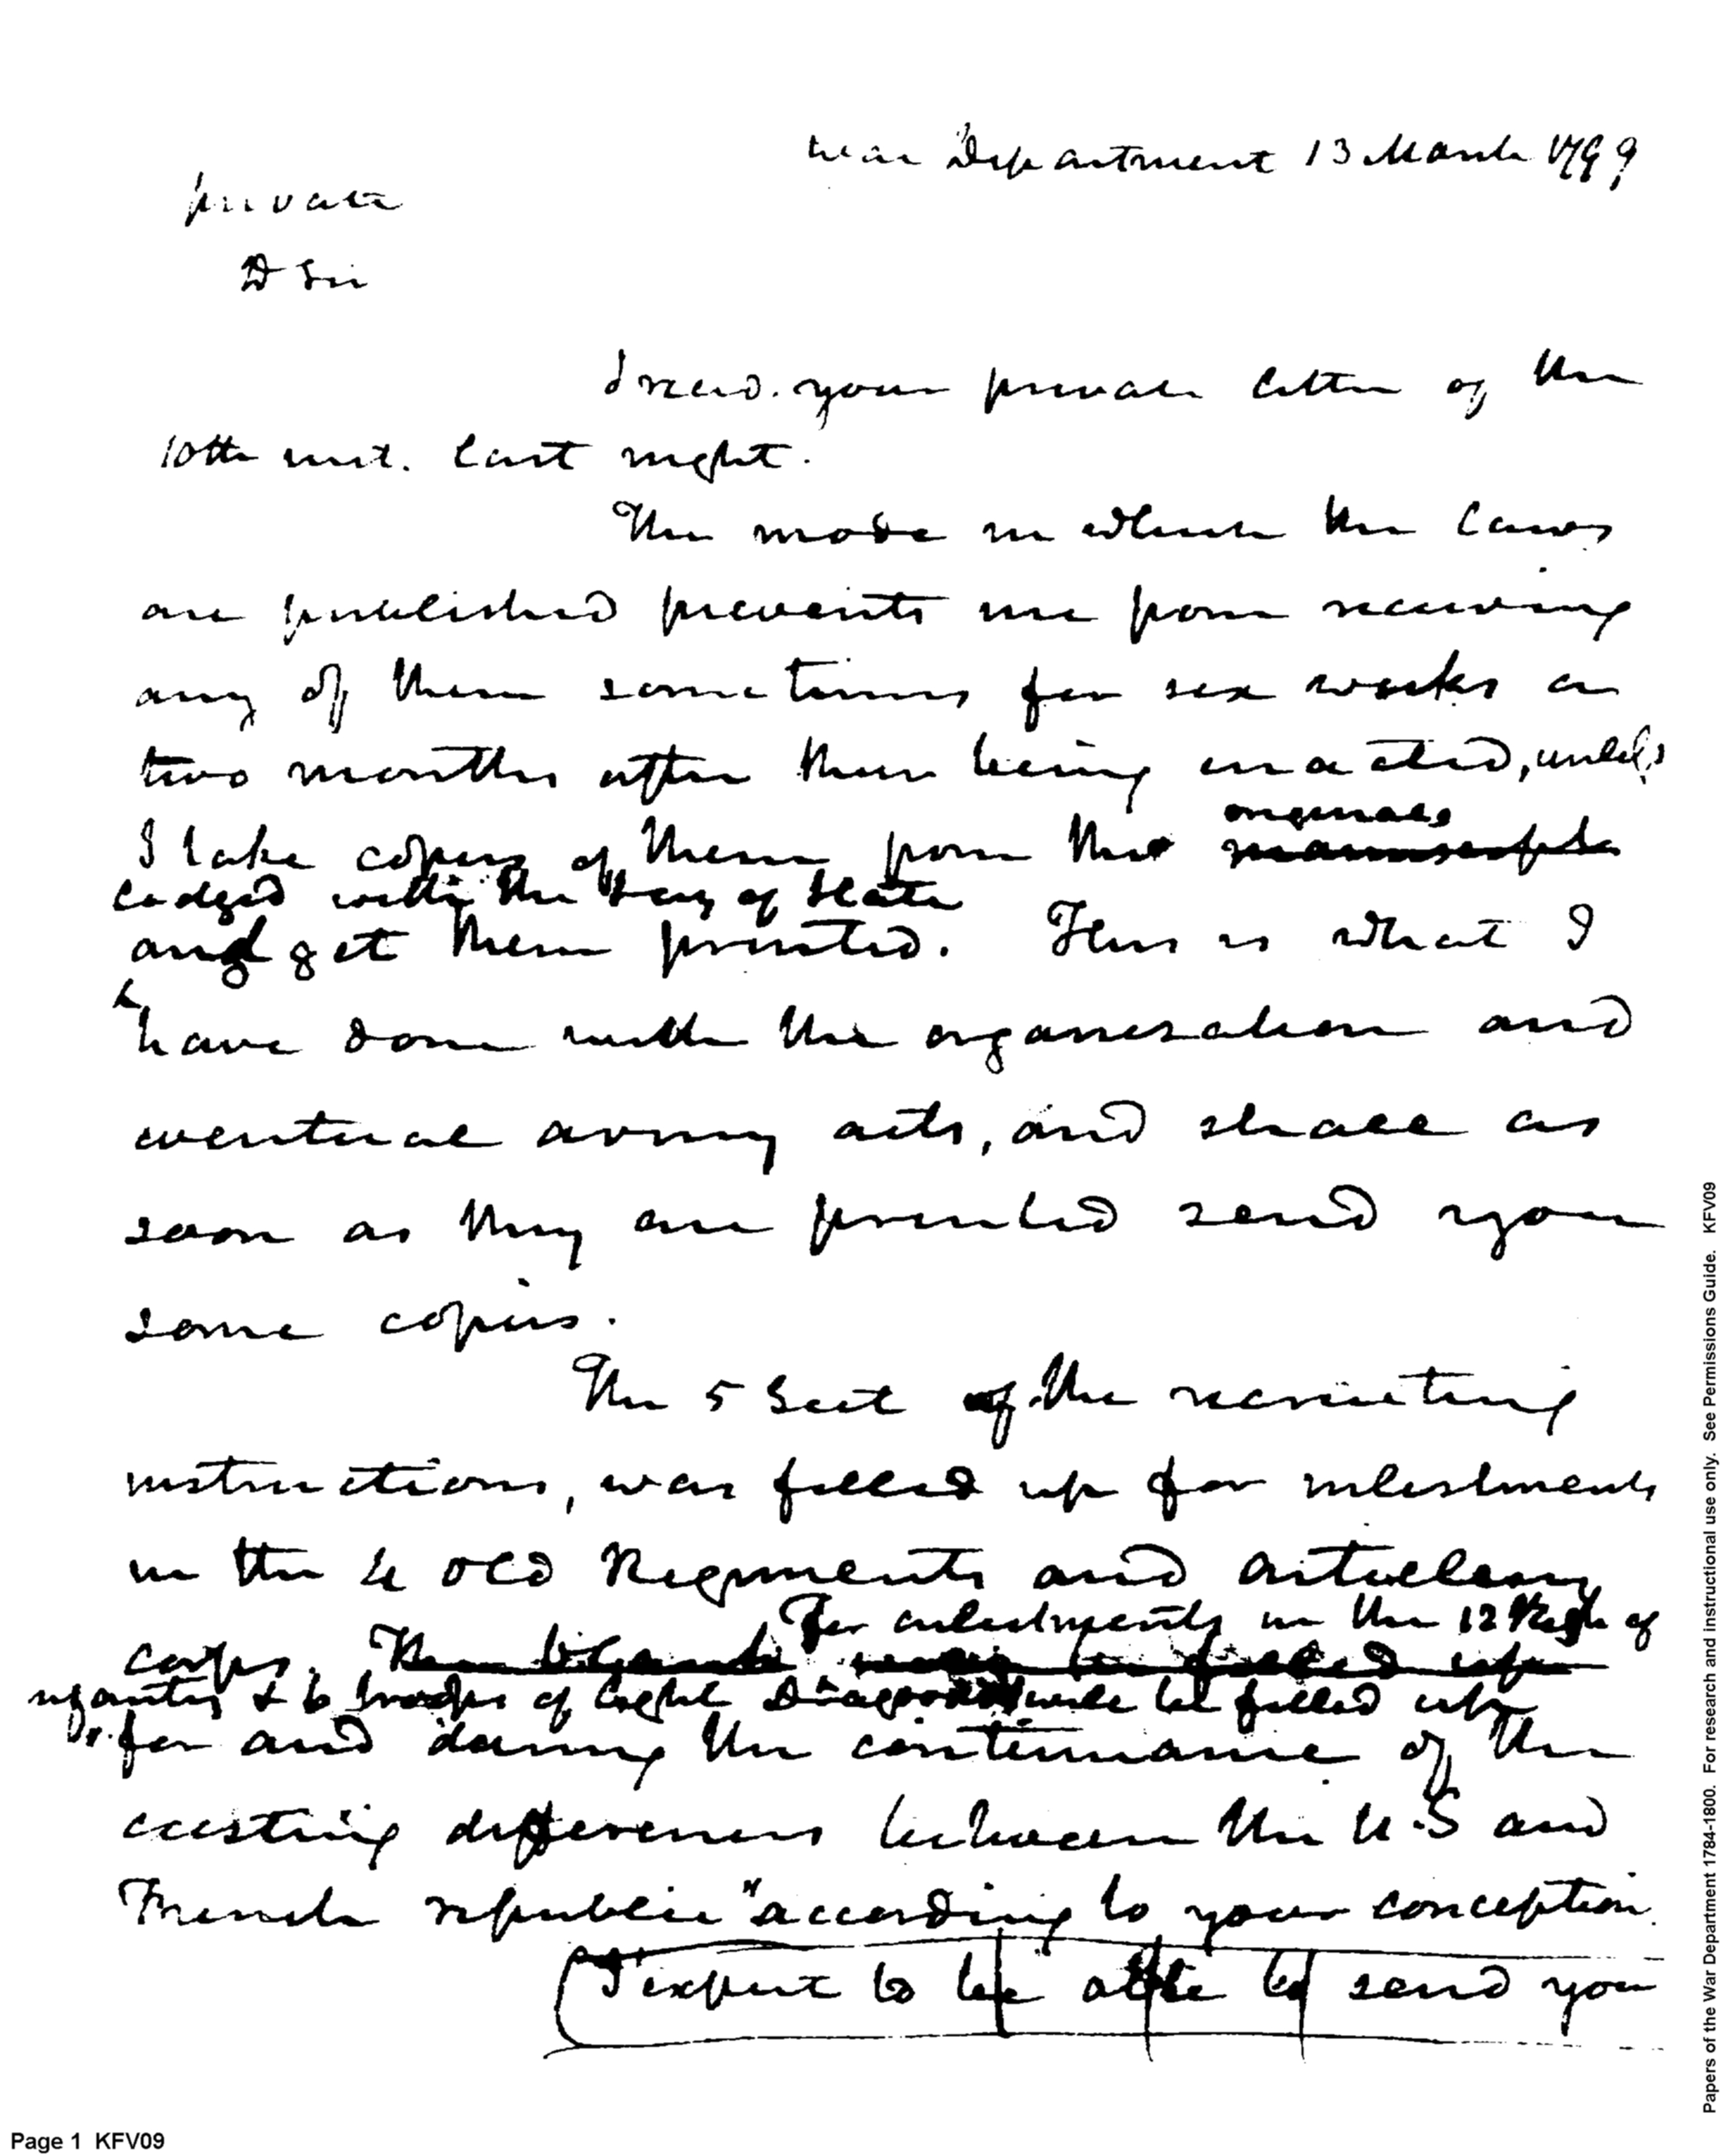 War Department 13 March 1799
private
D Sir
I recd. your private letter of the
10th inst. last night.
The mode in which the laws
are published prevents me from receiving
any of them sometimes for six weeks or
two months after their being enacted, unless
originals
I take copies of them from the manuscripts
lodged with the Secy of State
and get them printed. This is what I
have done with the organization and
eventual army acts, and shall as
soon as they are printed send you
some copies.
The 5 Sect of the recruiting
instructions, was filled up for inlistments
in the 4 old Regiments and artillery
For inlistments in the 12 Regts of
corps. The blanks may be filled up
infantry & 6 troops of light Dragoons will be filled up
"for and during the continuance of the
existing differences between the U.S and
French republic" according to your conception.
I expect to be able to send you
Page 1 KFV09
Papers of the War Department 1784-1800. For research and instructional use only. See Permissions Guide. KFV09